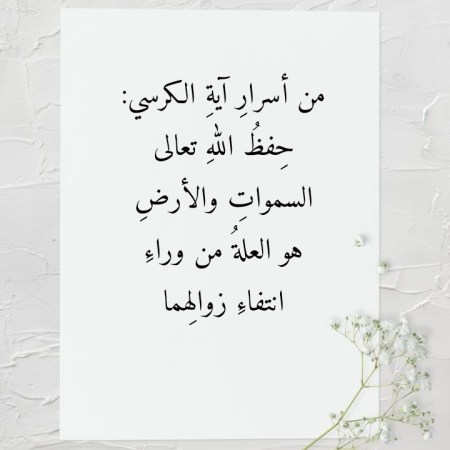 من أسرارِ آيةِ الكرسي:
حِفظُ اللهِ تعالى
السمواتِ والأرضِ
هو العلةُ من وراءِ
انتفاءِ زوالِهما